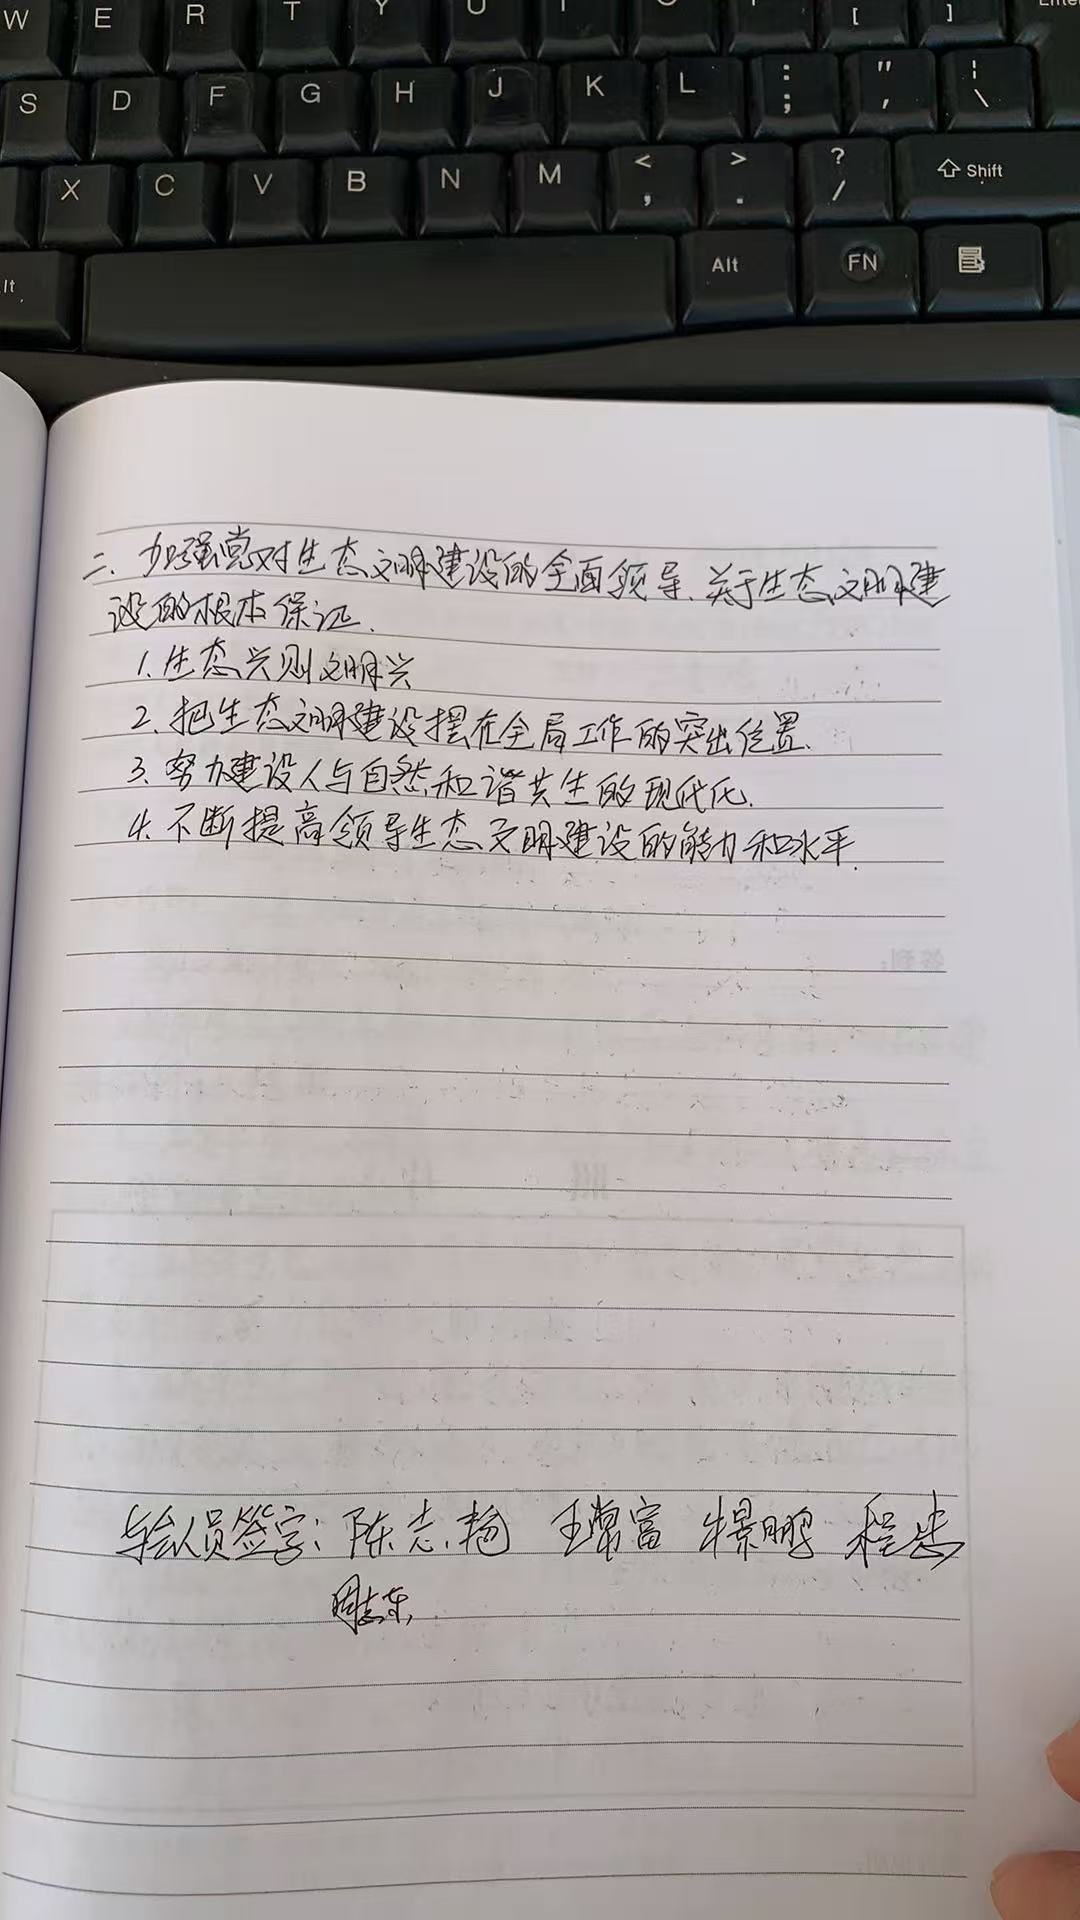 W E R T Y U I O P [ ] Enter
S D F G H J K L : ; " ' | \
X C V B N M < , > . ? / Shift
lt Alt FN
二、加强党对生态文明建设的全面领导、关于生态文明建
设的根本保证.
1.生态兴则文明兴
2.把生态文明建设摆在全局工作的突出位置.
3.努力建设人与自然和谐共生的现代化.
4.不断提高领导生态文明建设的能力和水平.
签到:
与会人员签字:陈志艳 王常富 牛景鹏 程忠
周志东